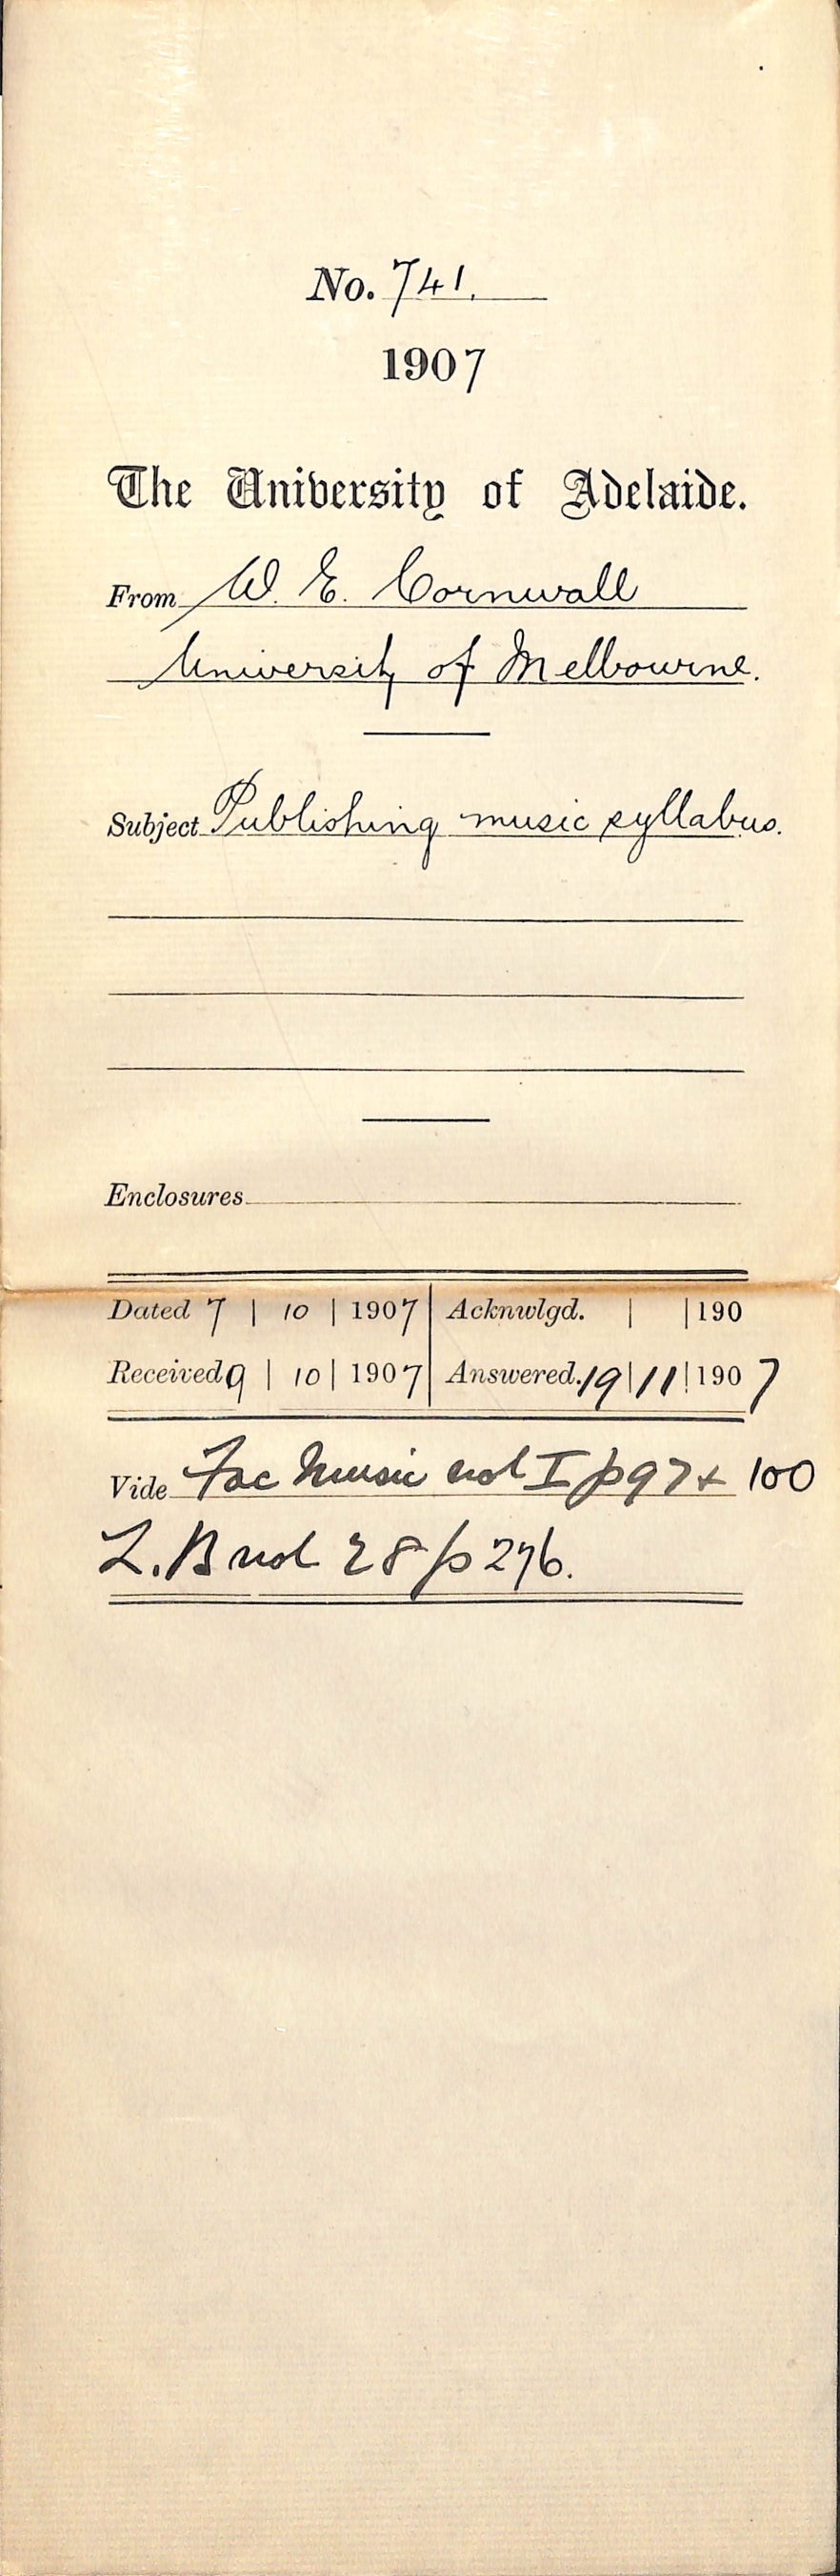 No. 741.
1907
The University of Adelaide.
From W. E. Cornwall
University of Melbourne.
Subject Publishing music syllabus.
Enclosures
Dated 7 | 10 | 1907 Acknwlgd. | | 190
Received 9 | 10 | 1907 Answered. 19 | 11 | 1907
Vide Fac Music vol I p 97 + 100
L. B vol 28 p 276.